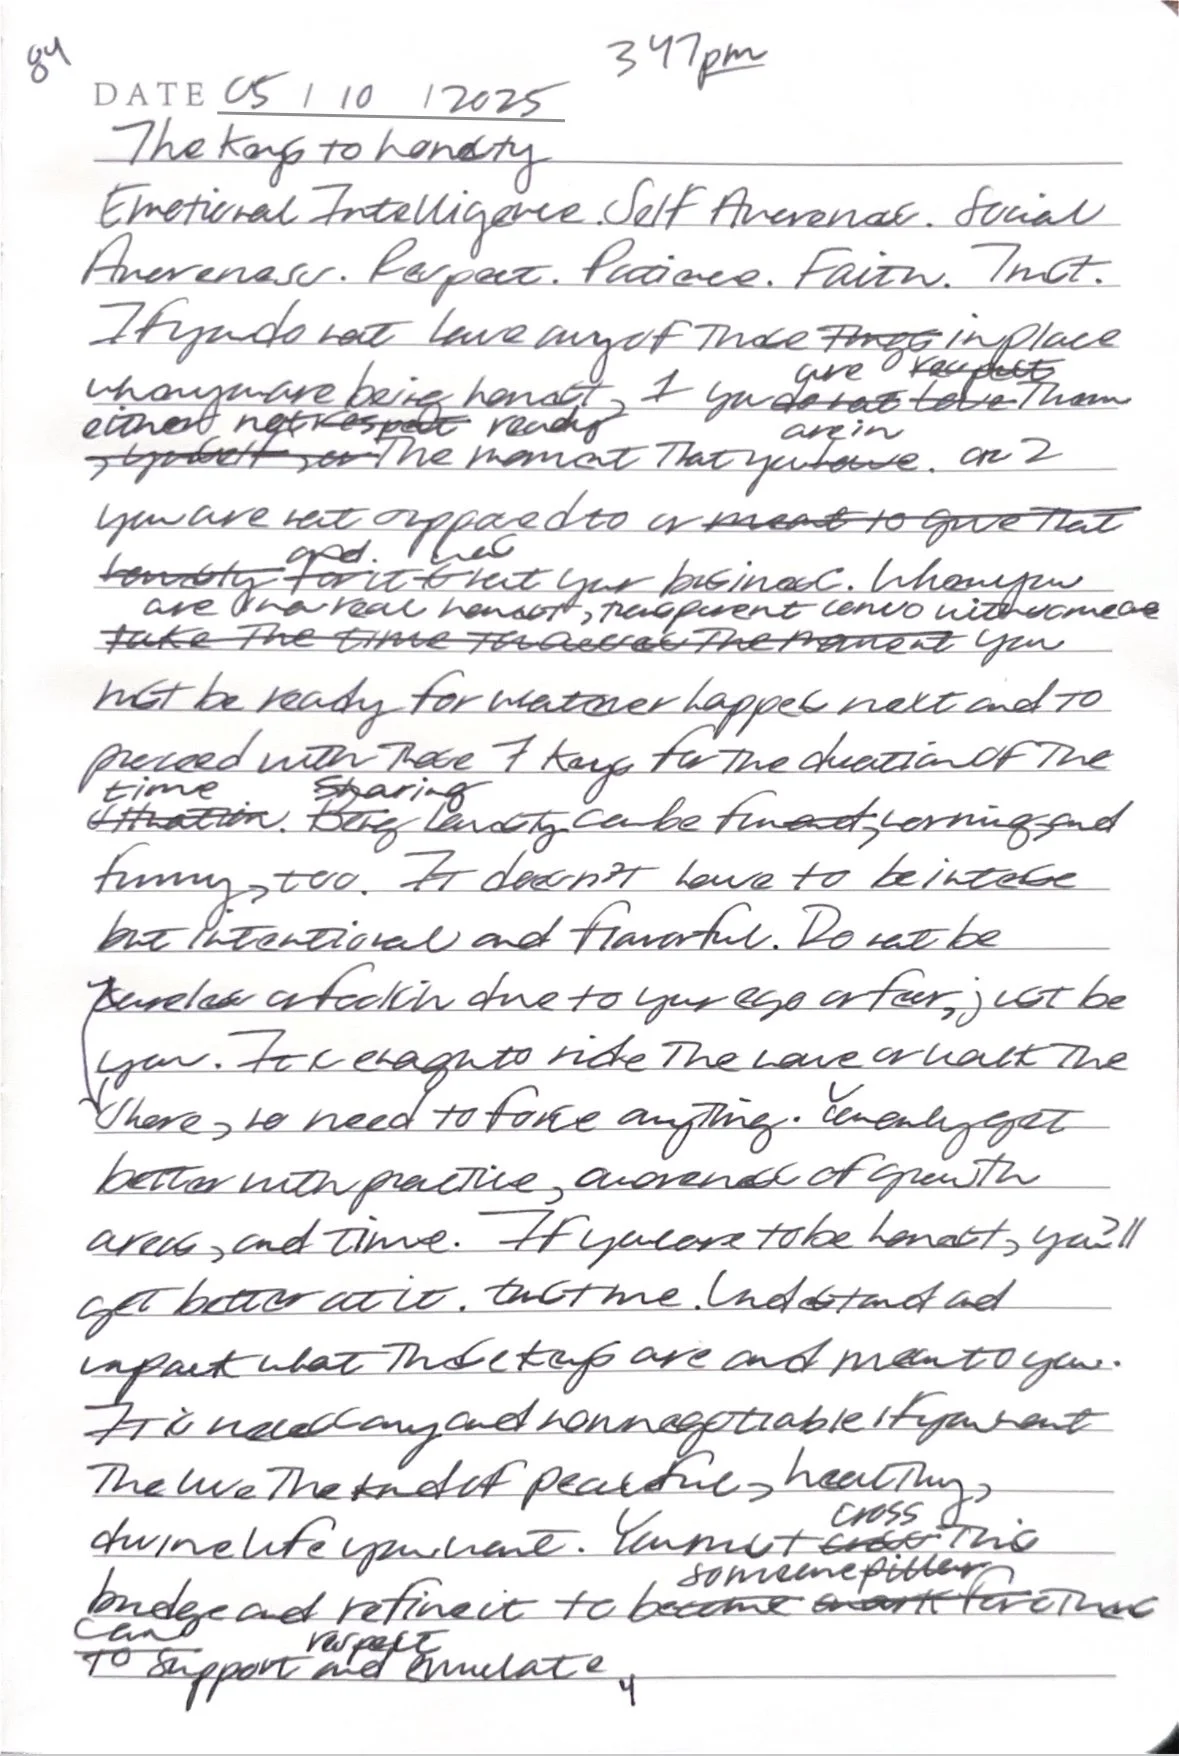 84
347pm
DATE 05 / 10 / 2025
The Keys to honesty
Emotional Intelligence. Self Awareness. Social
Awareness. Respect. Patience. Faith. Trust.
If you do not have any of those things in place
are respect
when you are being honest, 1 you do not love them
either not respect ready
are in
yourself, or The moment that you have. or 2
you are not supposed to or meant to give that
and. was
honesty for it not your business. When you
are in a real honest, transparent convo with someone
take the time to access the moment you
must be ready for whatever happes next and to
proceed with those 7 keys for the duration of the
time Sharing
situation. Being honesty can be fun and, and
funny, too. It doesn't have to be intese
but intentional and flavorful. Do not be
careless or due to your ego or fear, just be
you. It is enough to ride the wave or walk the
shore, no need to force anything. You only get
better with practice, awareness of growth
areas, and time. If you care to be honest, you'll
get better at it. trust me. Understand and
unpack what those keys are and mean to you.
It is necessary and nonnegotiable if you want
the live the kind of peaceful, healthy,
divine life you want. You must cross this
cross
someone
bridge and refine it to become for those
can
respect
to support and emulate